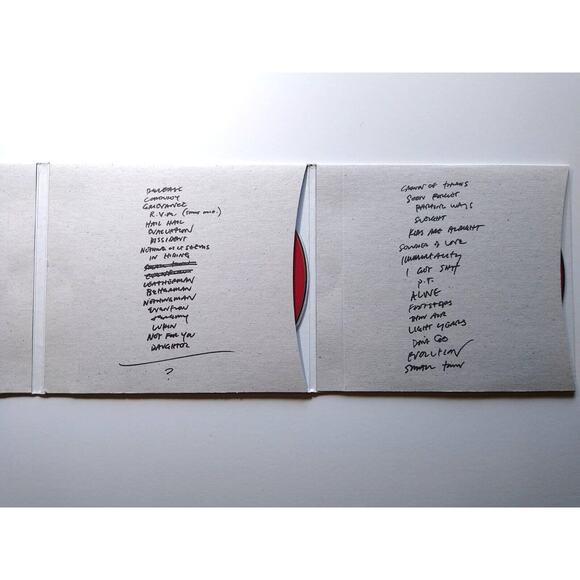 RELEASE
CORDUROY
GRIEVANCE
R.V.M. (THIS ONE.)
HAIL HAIL
EVACUATION
DISSIDENT
NOTHING AS IT SEEMS
IN HIDING
LEATHERMAN
BETTERMAN
NOTHINGMAN
EVENFLOW
LUKIN
NOT FOR YOU
DAUGHTER
?
CROWN OF THORNS
SOON FORGET
PARTING WAYS
SLEIGHT
KIDS ARE ALRIGHT
SOLDIER OF LOVE
IMMORTALITY
I GOT SHIT
P.T.
ALIVE
FOOTSTEPS
THIN AIR
LIGHT YEARS
DON'T GO
EVOLUTION
SMALL TOWN